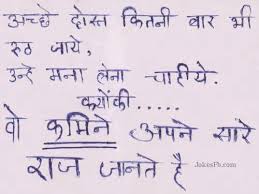 अच्छे दोस्त कितनी बार भी
रूठ जाये,
उन्हे मना लेना चाहीये.
क्योंकी......
वो कमिने अपने सारे
राज जानते है
JokesPb.com